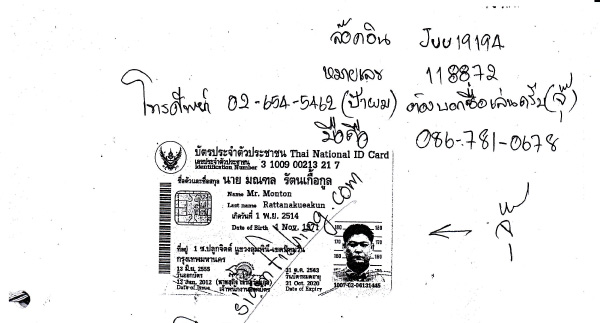 ล๊อคอิน JUU1919A
หมายเลข 118872
โทรศัพท์ 02-654-5462 (ป้าผม) ต้องบอกชื่อเล่นครับ (จุ๊)
มือถือ 086-781-0678
บัตรประจำตัวประชาชน Thai National ID Card
เลขประจำตัวประชาชน
Identification Number 3 1009 00213 21 7
ชื่อตัวและชื่อสกุล นาย มณฑล รัตนเกื้อกูล
Name Mr. Monton
Last name Rattanakueakun
เกิดวันที่ 1 พ.ย. 2514
Date of Birth 1 Nov. 1971
ที่อยู่ 1 ซ.ปลูกจิตต์ แขวงลุมพินี เขตปทุมวัน
กรุงเทพมหานคร
13 มิ.ย. 2555
วันออกบัตร
13 Jun. 2012
Date of Issue
เจ้าพนักงานออกบัตร
31 ต.ค. 2563
วันบัตรหมดอายุ
31 Oct. 2020
Date of Expiry
1007-02-06131445
siamfishing.com
จุ๊